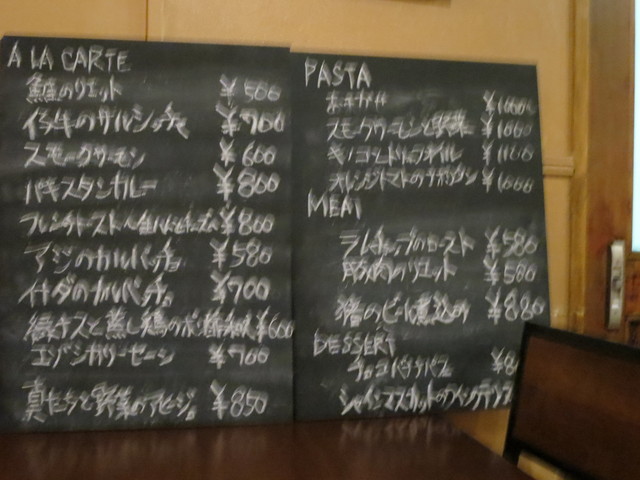 A LA CARTE
のリエット ¥500
仔牛のサルシッチャ ¥700
スモークサーモン ¥600
パキスタンカレー ¥800
フレンチトースト 生ハムとチーズ ¥800
アジのカルパッチョ ¥580
イナダのカルパッチョ ¥700
と蒸し鶏のポン酢和え ¥600
エゾシカソーセージ ¥700
真だちと野菜のアヒージョ ¥850
PASTA
おまかせ ¥1000
スモークサーモンと野菜 ¥1000
キノコとトリュフオイル ¥1100
オレンジトマトの ¥1000
MEAT
ラムチョップのロースト ¥580
豚肉のリエット ¥580
のビール煮込み ¥880
DESSERT
チョコバナナパフェ ¥8
シャインマスカットの